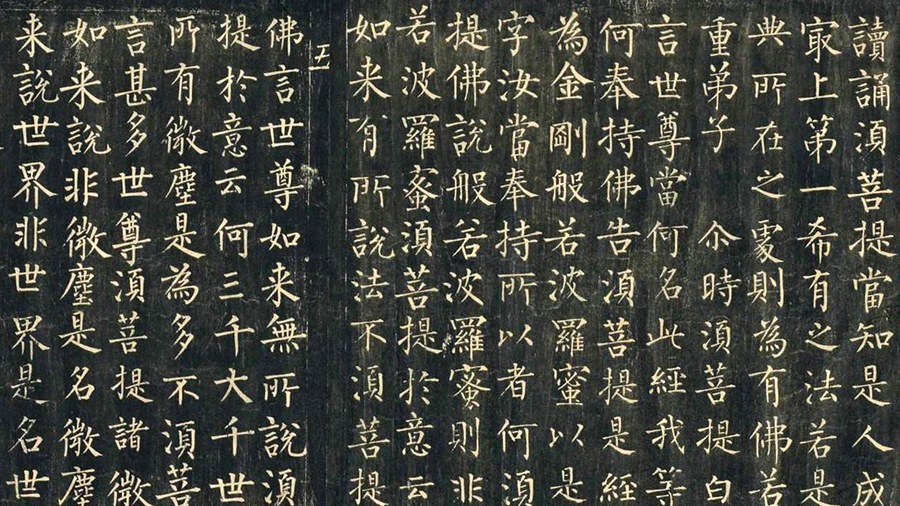 讀誦湏菩提當知是人成
冣上第一希有之法若是
典所在之處則為有佛若
重弟子 尒時湏菩提白
言世尊當何名此經我等
何奉持佛告湏菩提是經
為金剛般若波羅蜜以是
字汝當奉持所以者何湏
提佛說般若波羅蜜則非
若波羅蜜湏菩提於意云
如来有所說法不湏菩提
佛言世尊如来無所說湏
提於意云何三千大千世
所有微塵是為多不湏菩
言甚多世尊湏菩提諸微
如来說非微塵是名微塵
来說世界非世界是名世